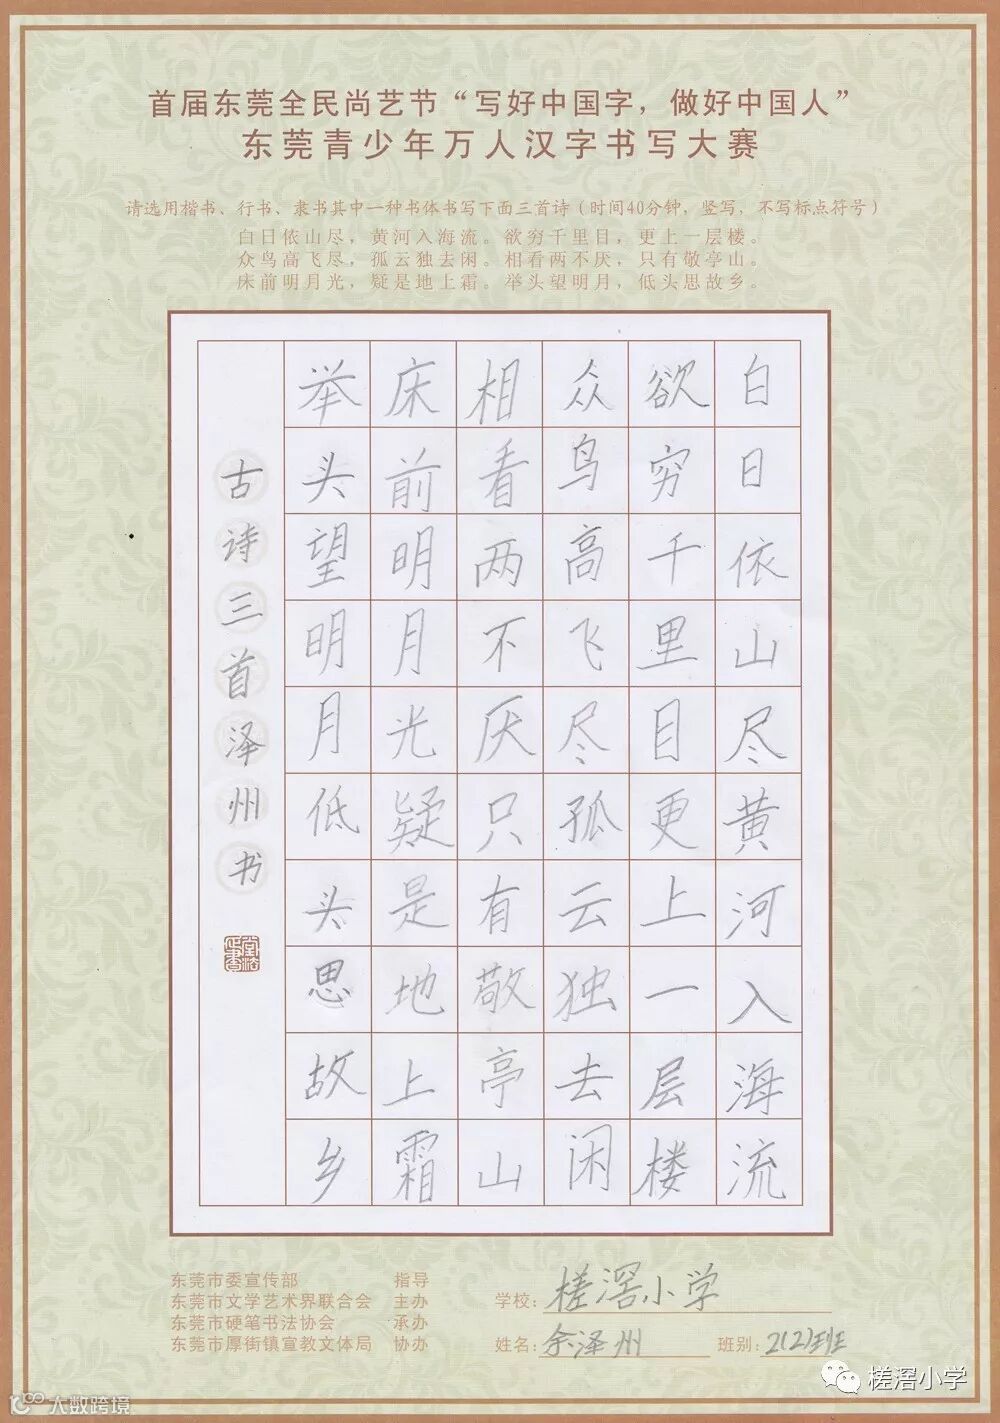 首届东莞全民尚艺节“写好中国字，做好中国人”
东莞青少年万人汉字书写大赛
请选用楷书、行书、隶书其中一种书体书写下面三首诗（时间40分钟，竖写，不写标点符号）
白日依山尽，黄河入海流。欲穷千里目，更上一层楼。
众鸟高飞尽，孤云独去闲。相看两不厌，只有敬亭山。
床前明月光，疑是地上霜。举头望明月，低头思故乡。
白日依山尽黄河入海流
欲穷千里目更上一层楼
众鸟高飞尽孤云独去闲
相看两不厌只有敬亭山
床前明月光疑是地上霜
举头望明月低头思故乡
古诗三首泽州书
东莞市委宣传部 指导
东莞市文学艺术界联合会 主办
东莞市硬笔书法协会 承办
东莞市厚街镇宣教文体局 协办
学校：槎滘小学
姓名：余泽州 班别：2(2)班
槎滘小学
大数跨境